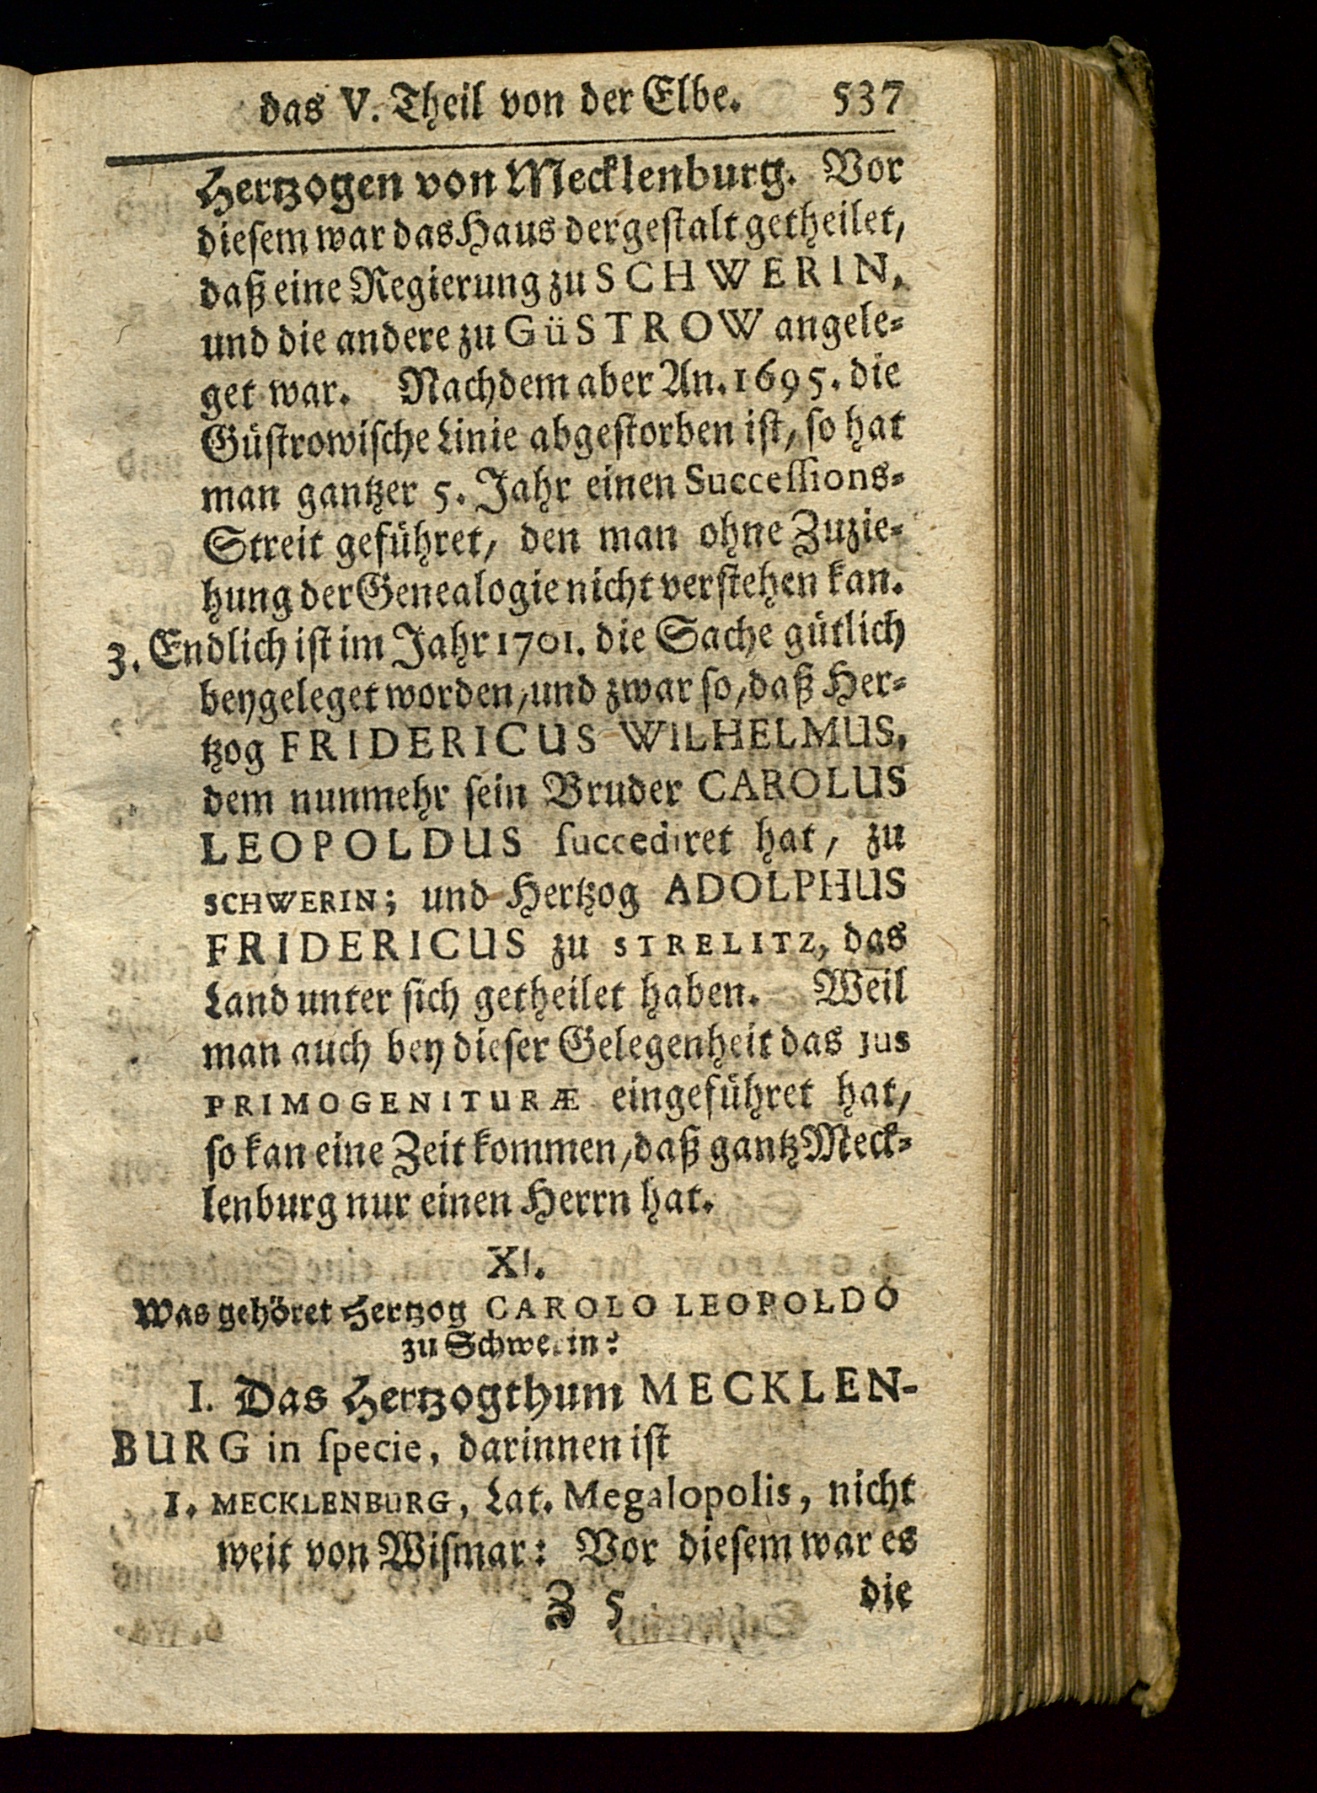 das V. Theil von der Elbe. 537
Hertzogen von Mecklenburg. Vor
diesem war das Haus dergestalt getheilet,
daß eine Regierung zu SCHWERIN,
und die andere zu GüSTROW angele=
get war. Nachdem aber An. 1695. die
Güstrowische Linie abgestorben ist, so hat
man gantzer 5. Jahr einen Successions=
Streit geführet, den man ohne Zuzie=
hung der Genealogie nicht verstehen kan.
3. Endlich ist im Jahr 1701. die Sache gütlich
beygeleget worden, und zwar so, daß Her=
tzog FRIDERICUS WILHELMUS,
dem nunmehr sein Bruder CAROLUS
LEOPOLDUS succediret hat, zu
SCHWERIN; und Hertzog ADOLPHUS
FRIDERICUS zu STRELITZ, das
Land unter sich getheilet haben. Weil
man auch bey dieser Gelegenheit das JUS
PRIMOGENITURÆ eingeführet hat,
so kan eine Zeit kommen, daß gantz Meck=
lenburg nur einen Herrn hat.
XI.
Was gehöret Hertzog CAROLO LEOPOLDO
zu Schwerin?
I. Das Hertzogthum MECKLEN-
BURG in specie, darinnen ist
1. MECKLENBURG, Lat. Megalopolis, nicht
weit von Wismar: Vor diesem war es
Z 5 die